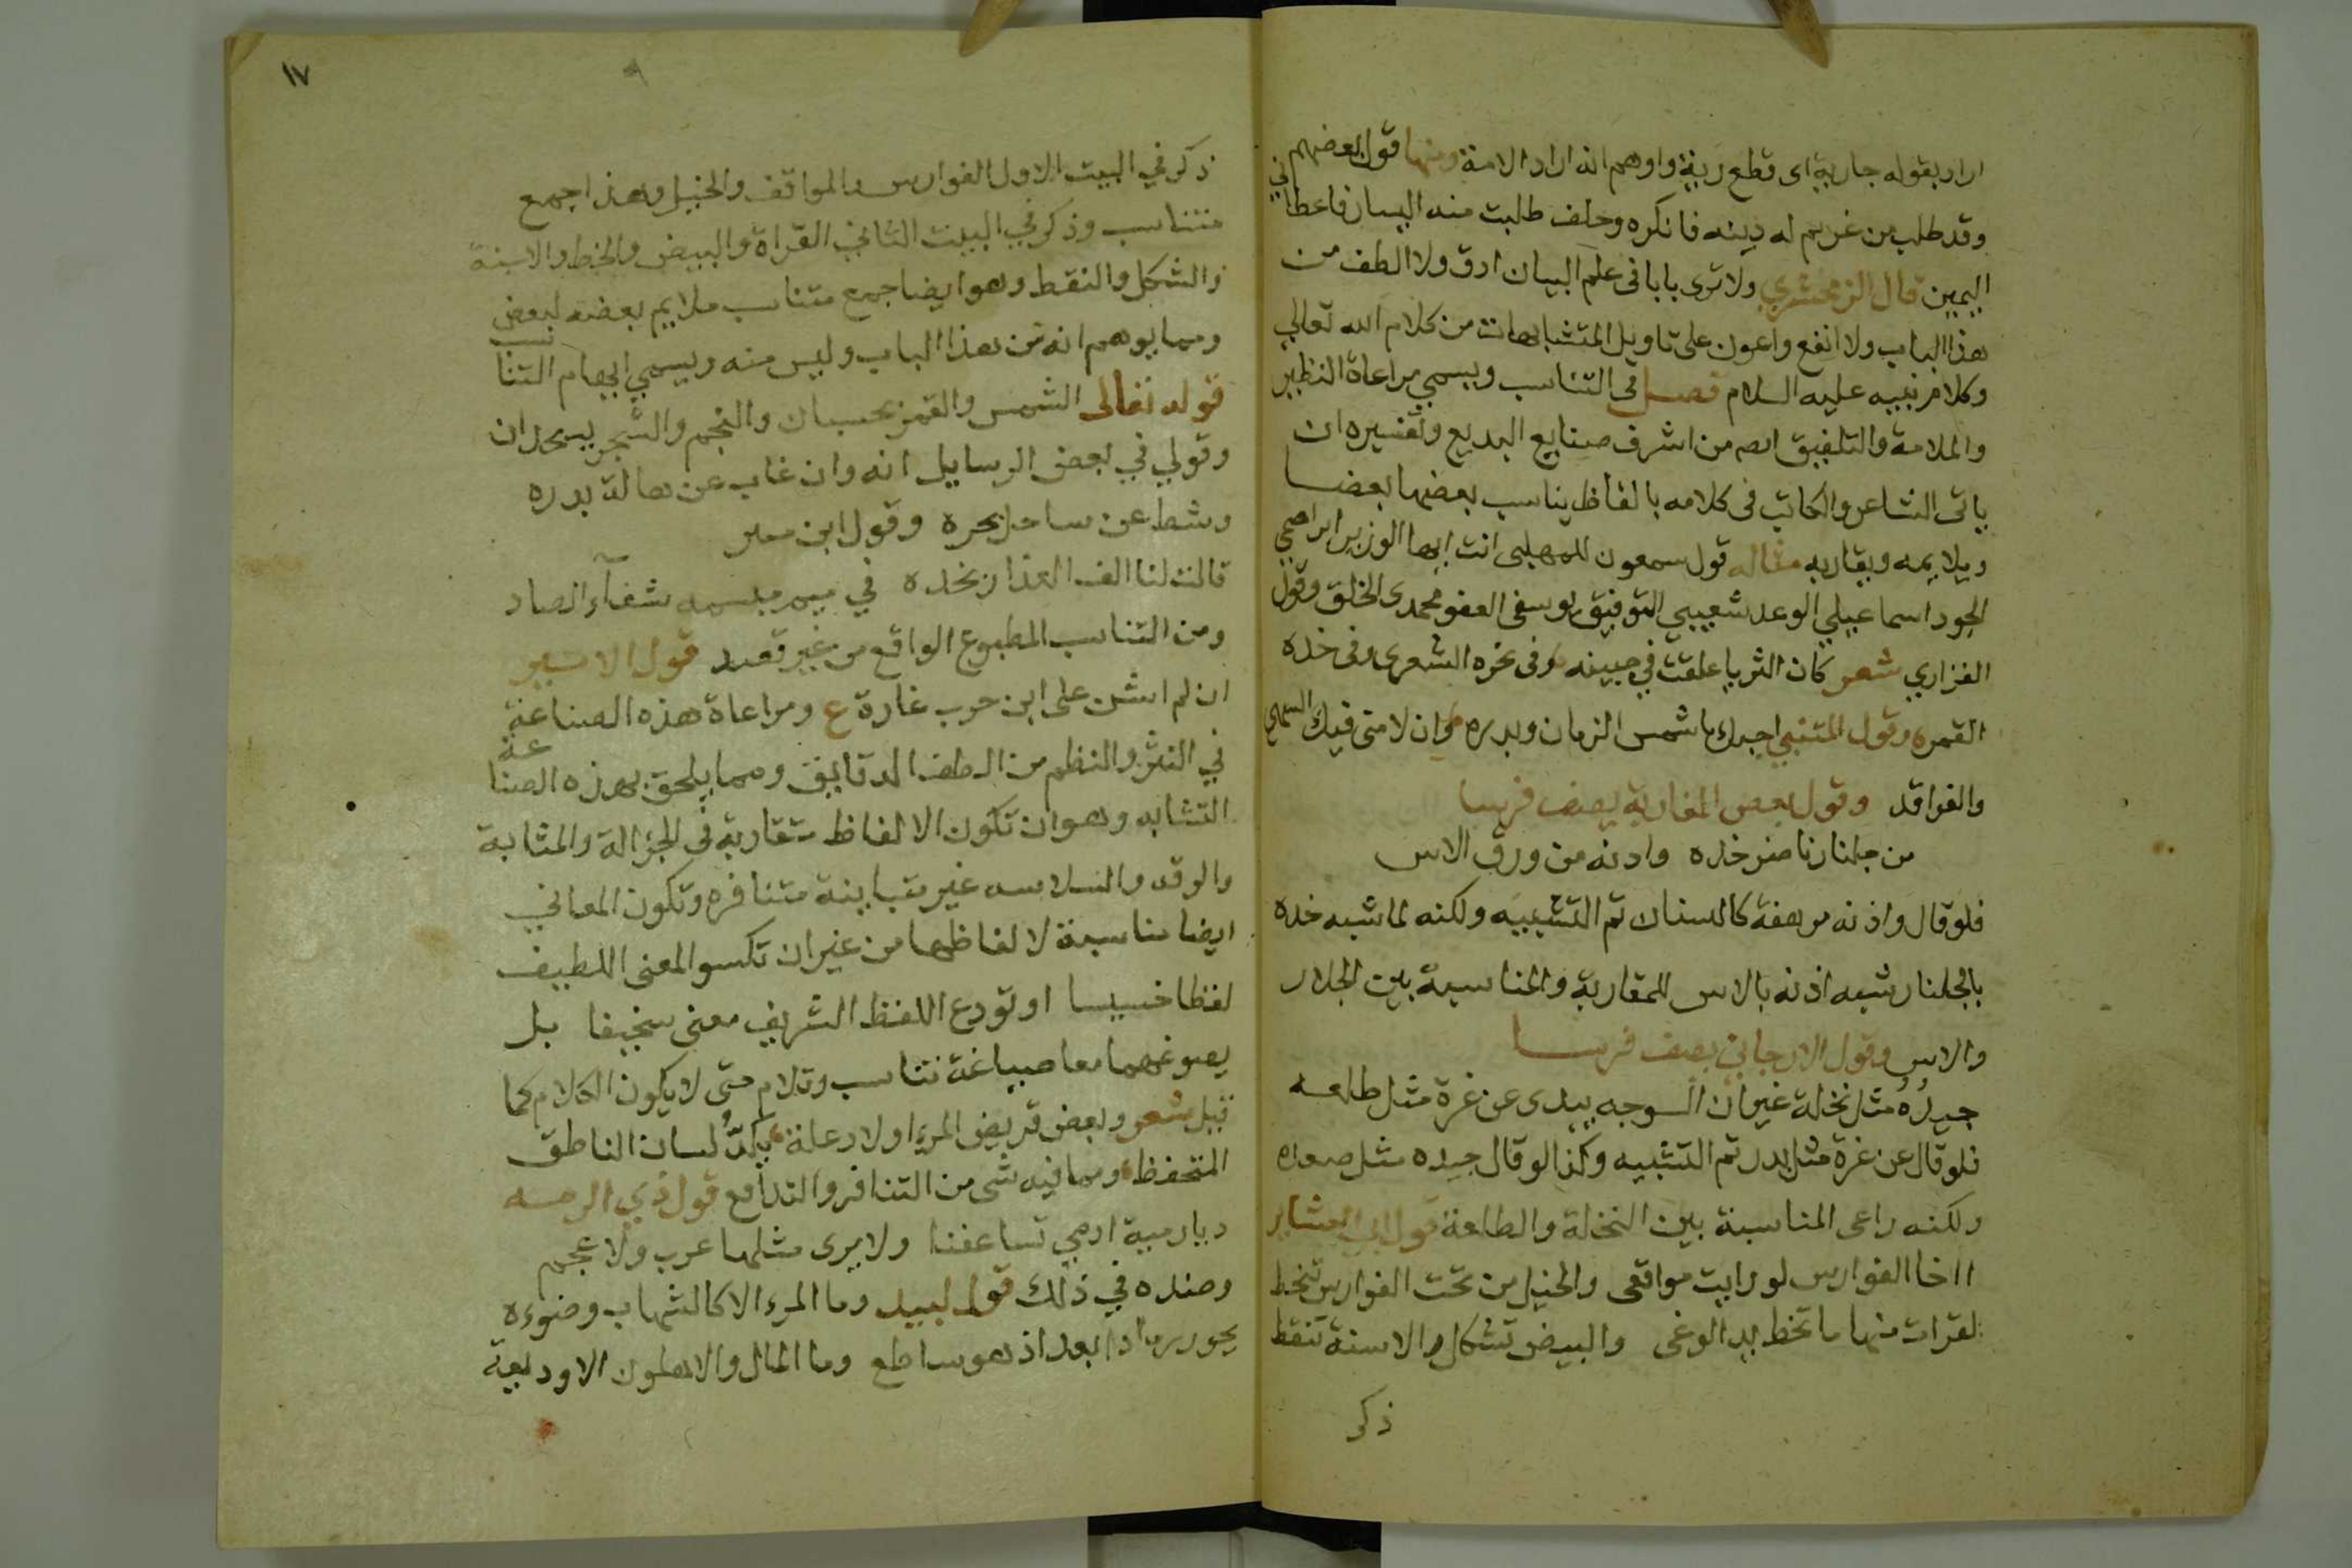 اراد بقوله جارية اى قطع زينة واوهم انه اراد الامة ومنها قول بعضهم
وقد طلب من غريم له دينه فانكره وحلف طلبت منه اليسار فاعطاني
اليمين قال الزمخشري ولا ترى بابا فى علم البيان ادق ولا الطف من
هذا الباب ولا انفع واعون على تاويل المتشابهات من كلام الله تعالي
وكلام نبيه عليه السلام فصل فى التناسب ويسمي مراعاة النظير
والملامة والتلفيق اهم من اشرف صنايع البديع وتفسيره ان
ياتى الشاعر والكاتب فى كلامه بالفاظ يناسب بعضها بعضا
ويلايمه ويقاربه مثاله قول سمعون للمهلبى انت ايها الوزير ابراهيمي
الجود اسماعيلي الوعد شعيبي التوفيق يوسفى العفو محمدى الخلق وقول
الفزاري شعر كان الثريا علقت في جبينه وفى نحره الشعرى وفى خده
القمره وقول المتنبي احبك يا شمس الزمان وبدره وان لامنى فيك السهى
والفراقد وقول بعض المغاربة يصف فرسا
من جلنار ناضر خده واذنه من ورق الاس
فلو قال واذنه مرهفة كالسنان تم التشبيه ولكنه لما شبه خده
بالجلنار شبه اذنه بالاس للمقاربة والمناسبة بين الجلنار
والاس وقول الارجاني يصف فرسا
جيدُهُ مثل نخلة غير ان الـوجه يبدى عن غرة مثل طلعه
فلو قال عن غرة مثل بدر تم التشبيه وكذا لو قال جيده مثل صعده
ولكنه راعى المناسبة بين النخلة والطلعة قول ابي العشاير
ااخا الفوارس لو رايت مواقفى والخيل من تحت الفوارس تنحط
لقرات منها ما تخط يد الوغى والبيض تشكل والاسنة تنقط
ذكر
١٧
ذكر في البيت الاول الفوارس والمواقف والخيل وهذا جمع
متناسب وذكر في البيت الثاني القراة والبيض والخط والاسنة
والشكل والنقط وهو ايضا جمع متناسب ملايم بعضه لبعض
ومما يوهم انه من هذا الباب وليس منه ويسمي ايهام التناسب
قوله تعالى الشمس والقمر بحسبان والنجم والشجر يسجدان
وقولي في بعض الرسايل انه وان غاب عن هالة بدره
وشط عن ساحل بحره وقول ابن
قالت لنا الف العذار بخده في ميم مبسمه شفآء الصاد
ومن التناسب المطبوع الواقع من غير تعمد قول الاشتر
ان لم اشن على ابن حرب غارة ع ومراعاة هذه الصناعة
في النثر والنظم من الطف الدقايق ومما يلحق بهذه الصناعة
التشابه وهو ان تكون الالفاظ متقاربة في الجزالة والمتابة
والوقة والسلاسه غير متباينة متنافره وتكون المعاني
ايضا مناسبة لالفاظها من غير ان تكسو المعنى اللطيف
لفظا خسيسا او تودع اللفظ الشريف معنى سخيفا بل
يصوغهما معا صياغة تناسب وتلام حتى لا يكون الكلام كما
قيل شعر وبعض قريض المرء اولاد علة يكدُّ لسان الناطق
المتحفظ ومما فيه شى من التنافر والتدافع قول ذي الرمه
ديار مية اذ مي تساعفنا ولا يرى مثلها عرب ولا عجم
وضده في ذلك قول لبيد وما المرء الا كالشهاب وضوءه
يحور رمادا بعد اذ هو ساطع وما المال والاهلون الا وديعة